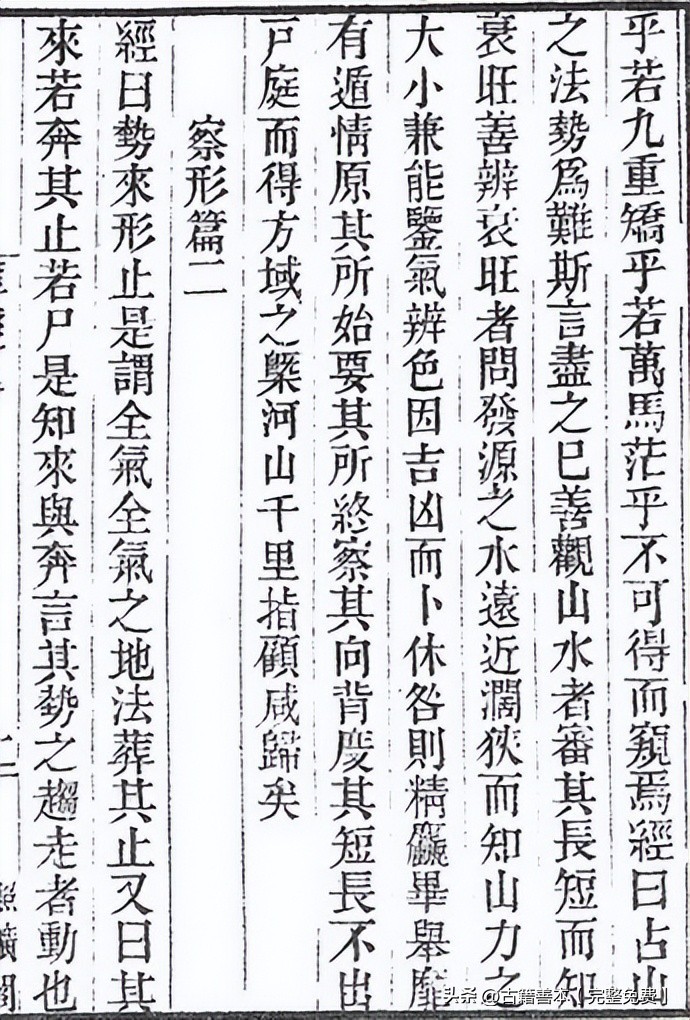 乎若九重矯乎若萬馬茫乎不可得而窺焉經曰占山
之法勢爲難斯言盡之已善觀山水者審其長短而知
衰旺善辨衰旺者問發源之水遠近濶狹而知山力之
大小兼能鑒氣辨色因吉凶而卜休咎則精麤畢舉靡
有遁情原其所始要其所終察其向背度其短長不出
戸庭而得方域之槩河山千里指顧咸歸矣
察形篇二
經曰勢來形止是謂全氣全氣之地法葬其止又曰其
來若奔其止若尸是知來與奔言其勢之趨走者動也
二
照曠閣
头条 @古籍善本【完整免费】